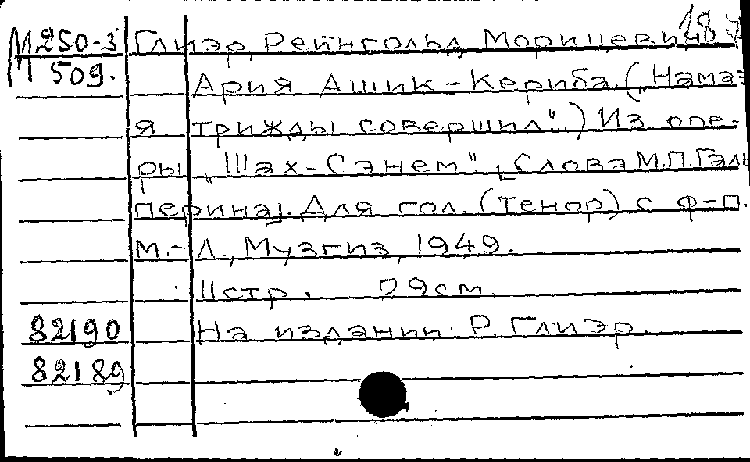 187
М 250-3 Глиэр, Рейнгольд Морицевич
М 509.
Ария Ашик-Кериба („Намаз
я трижды совершил".) Из опе-
ры „Шах-Сэнем". [Слова М.П. Галь
перина]. Для гол. (тенор) с ф-п.
М.-Л., Музгиз, 1949.
11 стр. 29 см.
82190 На издании: Р. Глиэр.
82189